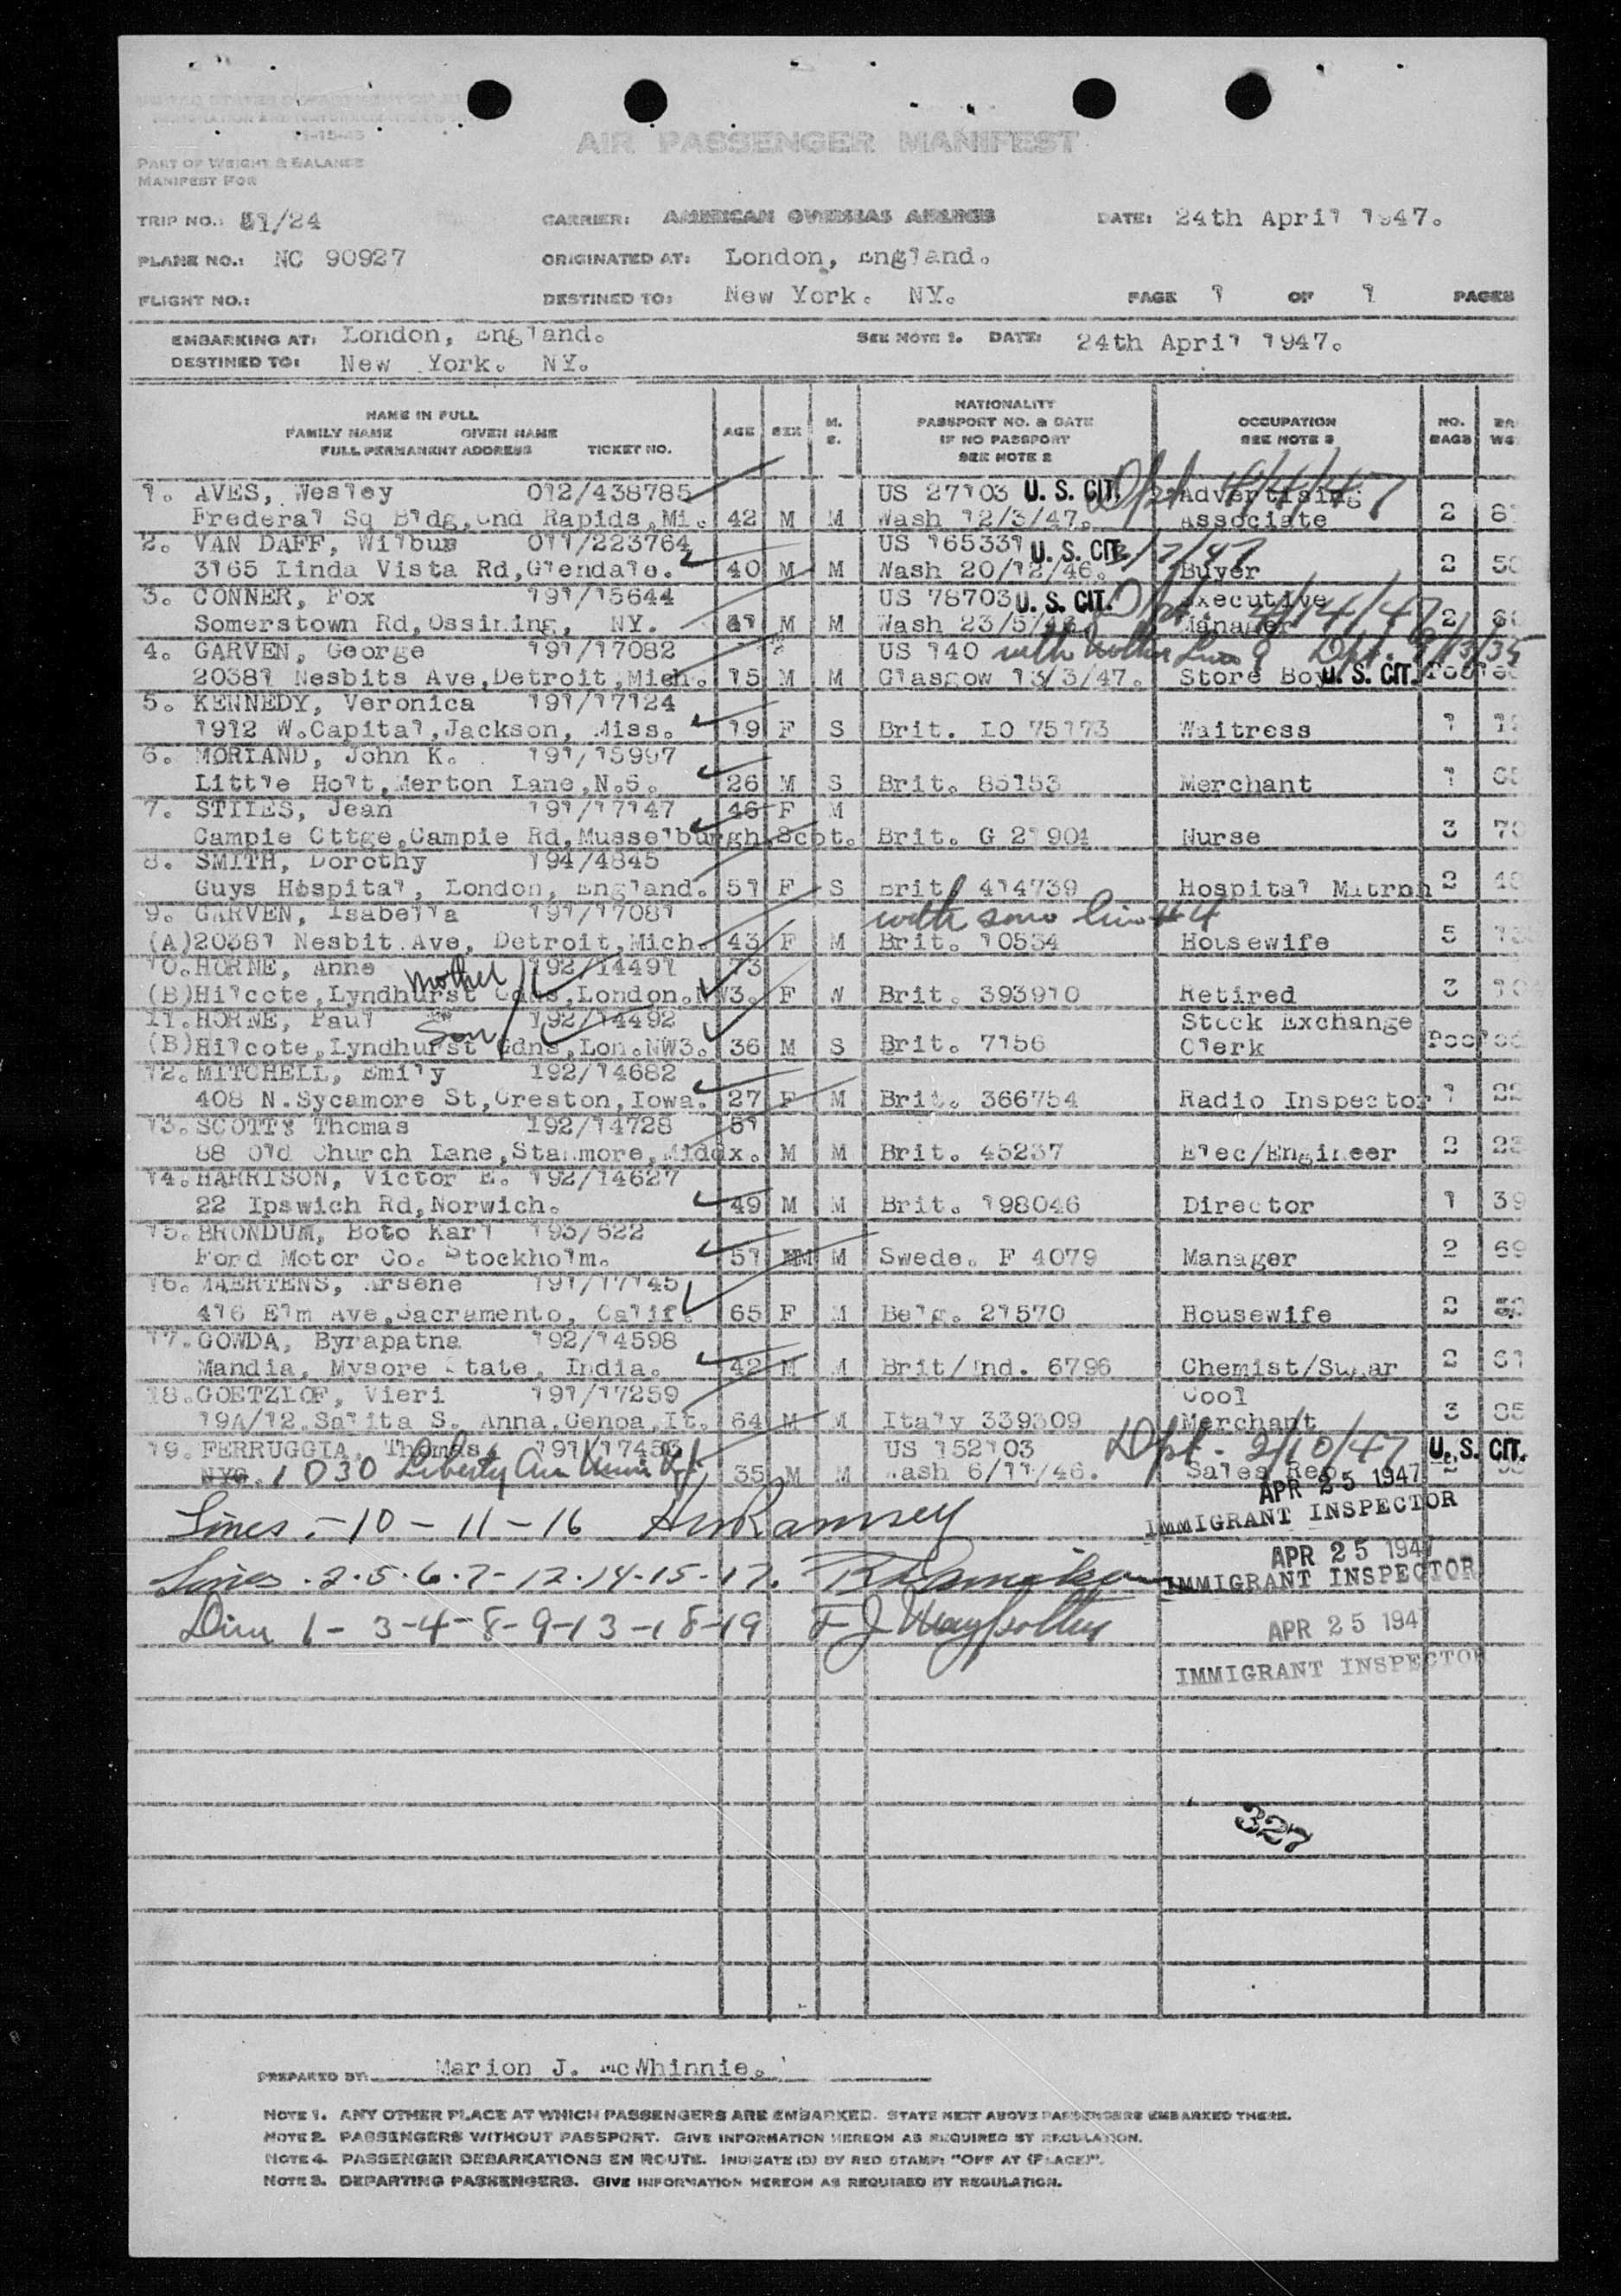 11-15-45
AIR PASSENGER MANIFEST
PART OF WEIGHT & BALANCE
MANIFEST FOR
TRIP NO.: 51/24 CARRIER: AMERICAN OVERSEAS AIRLINES DATE: 24th April 1947.
PLANE NO.: NC 90927 ORIGINATED AT: London, England.
FLIGHT NO.: DESTINED TO: New York. NY. PAGE 1 OF 1 PAGES
EMBARKING AT: London, England. SEE NOTE 1. DATE: 24th April 1947.
DESTINED TO: New York. NY.
NAME IN FULL
FAMILY NAME GIVEN NAME
FULL PERMANENT ADDRESS TICKET NO.
AGE SEX M. S.
NATIONALITY
PASSPORT NO. & DATE
IF NO PASSPORT
SEE NOTE 2
OCCUPATION
SEE NOTE 3
NO. BAGS
1. AVES, Wesley 012/438785 US 27103 U. S. CIT. Dpt 4/4/47 Advertising
Frederal Sq Bldg, Gnd Rapids, Mi. 42 M M Wash 12/3/47. Associate 2
2. VAN DAFF, Wilbur 011/223764 US 165331 U. S. CIT. /7/47
3165 Linda Vista Rd, Glendale. 40 M M Wash 20/12/46. Buyer 2
3. CONNER, Fox 191/15644 US 78703 U. S. CIT. Dpt. 4/14/47 Executive
Somerstown Rd, Ossining, NY. M M Wash 23/5/ Manager 2
4. GARVEN, George 191/17082 US 140 with mother Line 9 Dpt. /13/35
20381 Nesbits Ave, Detroit, Mich. 15 M M Glasgow 13/3/47. Store Boy U. S. CIT. Pool
5. KENNEDY, Veronica 191/17124
1912 W. Capital, Jackson, Miss. 19 F S Brit. LO 75173 Waitress 1
6. MORLAND, John K. 191/15997
Little Holt, Merton Lane, N.6. 26 M S Brit. 85153 Merchant 1
7. STILES, Jean 191/17147 46 F M
Campie Cttge, Campie Rd, Musselburgh, Scot. Brit. G 21904 Nurse 3
8. SMITH, Dorothy 194/4845
Guys Hospital, London, England. 51 F S Brit 414739 Hospital Matrnh 2
9. GARVEN, Isabella 191/17081 with son line #4
(A) 20381 Nesbit Ave, Detroit, Mich. 43 F M Brit. 10534 Housewife 5
10. HORNE, Anne mother 192/14491 73
(B) Hilcote, Lyndhurst Gdns, London. NW3. F W Brit. 393910 Retired 3
11. HORNE, Paul Son 192/14492 Stock Exchange
(B) Hilcote, Lyndhurst Gdns, Lon. NW3. 36 M S Brit. 7156 Clerk Pool
12. MITCHELL, Emily 192/14682
408 N. Sycamore St, Creston, Iowa. 27 F M Brit. 366754 Radio Inspector 1
13. SCOTT, Thomas 192/14728 51
88 Old Church Lane, Stanmore, Middx. M M Brit. 45237 Elec/Engineer 2
14. HARRISON, Victor E. 192/14627
22 Ipswich Rd, Norwich. 49 M M Brit. 198046 Director 1 39
15. BRONDUM, Boto Karl 193/522
Ford Motor Co. Stockholm. 51 M M Swede. F 4079 Manager 2 69
16. MAERTENS, Arsene 191/17145
416 Elm Ave, Sacramento, Calif. 65 F M Belg. 21570 Housewife 2
17. GOWDA, Byrapatna 192/14598
Mandia, Mysore State, India. 42 M M Brit/Ind. 6796 Chemist/Sugar 2 61
18. GOETZLOF, Vieri 191/17259
19A/12, Salita S. Anna, Genoa, It. 64 M M Italy 339309 Merchant 3
19. FERRUGGIA, Thomas 191/17456 US 152103 Dpt. 2/10/47 U. S. CIT.
NYC. 1030 Liberty Ave 35 M M Wash 6/11/46. Sales Rep. 2
Lines - 10 - 11 - 16 Ramsey APR 25 1947
IMMIGRANT INSPECTOR
Lines . 2 . 5 . 6 . 7 - 12 . 14 . 15 - 17. APR 25 1947
IMMIGRANT INSPECTOR
Line 1 - 3 - 4 - 8 - 9 - 13 - 18 - 19 APR 25 194
IMMIGRANT INSPECTOR
327
PREPARED BY: Marion J. McWhinnie.
NOTE 1. ANY OTHER PLACE AT WHICH PASSENGERS ARE EMBARKED. STATE NEXT ABOVE PASSENGERS EMBARKED THERE.
NOTE 2. PASSENGERS WITHOUT PASSPORT. GIVE INFORMATION HEREON AS REQUIRED BY REGULATION.
NOTE 4. PASSENGER DEBARKATIONS EN ROUTE. INDICATE (D) BY RED STAMP: "OFF AT (PLACE)".
NOTE 3. DEPARTING PASSENGERS. GIVE INFORMATION HEREON AS REQUIRED BY REGULATION.